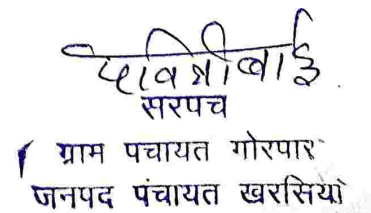 पवित्रीबाई
सरपच
ग्राम पचायत गोरपार
जनपद पंचायत खरसिया